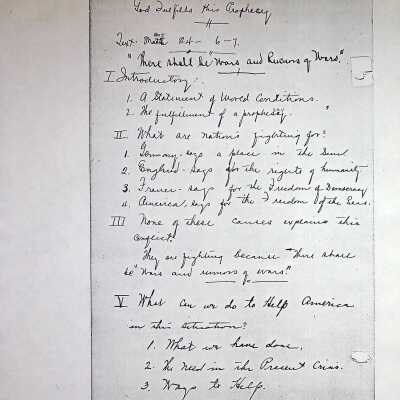 God Fulfills His Prophecy
Text. Matt 24 - 6-7.
"There shall be "Wars and Rumors of Wars."
I Introductory:
1. A Statement of World Conditions.
2. The fulfillment of a prophecy.
II. What are nations fighting for?
1. Germany - says a place in the Sun
2. England - says for the rights of humanity
3. France - says for the Freedom of Democracy
4. America says for the Freedom of the Seas.
III None of these causes explains this
conflict.
They are fighting because "There shall
be "Wars and rumors of wars."
V What can we do to Help America
in this situation?
1. What we have done.
2. The Need in the Present Crisis.
3. Ways to Help.